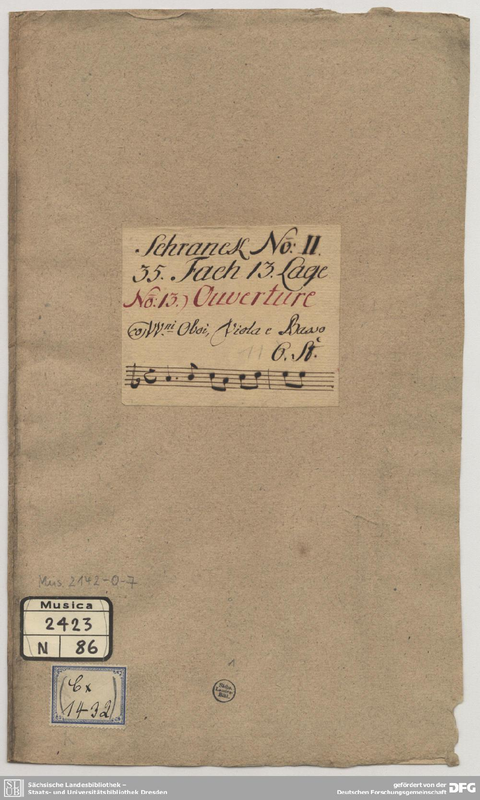 Schranck No: II.
35. Fach 13. Lage
No: 13.) Ouverture
VV.ni Oboi, Viola e Basso
11 6. St.
Mus. 2142-O-7
Musica
2423
N 86
Cx
1432
1
Sächs.
Landes-
Bibl.
SLUB
Sächsische Landesbibliothek –
Staats- und Universitätsbibliothek Dresden
gefördert von der
Deutschen Forschungsgemeinschaft
DFG